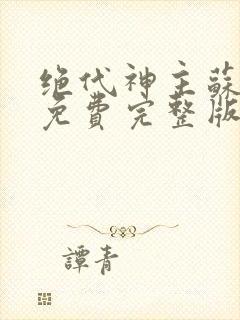 绝代神主蘇
免費完整版
譚青